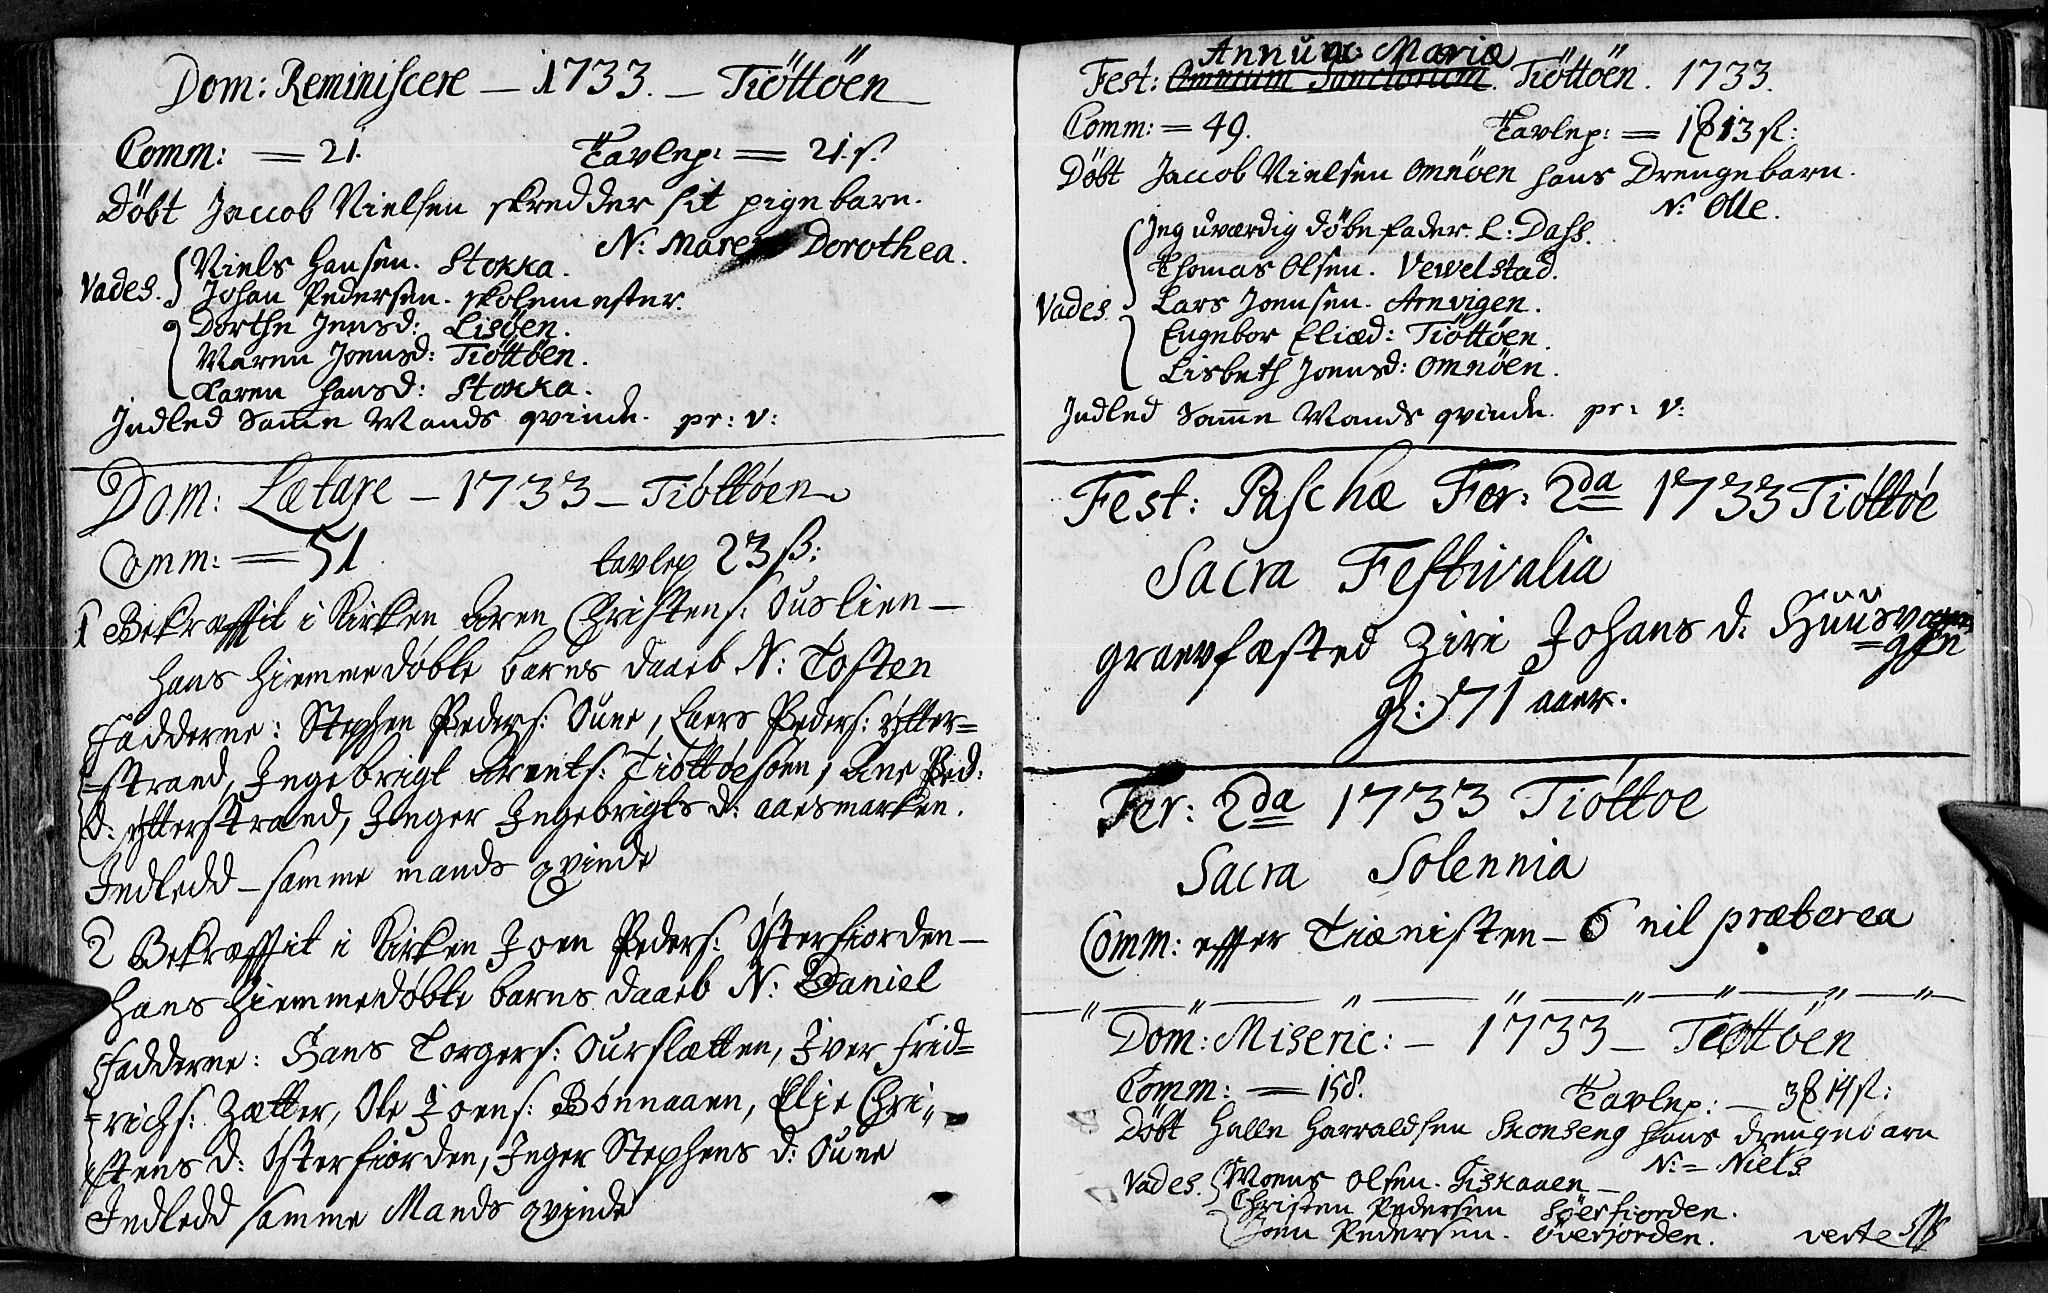 Dom: Reminiscere – 1733. – Tiöttöen
Comm: = 21. Tavlep: = 21. s.
Döbt Jaccob Nielsen skredder sit pigebarn.
N: Maren Dorothea.
Vades. Niels Hansen. Stokka.
Johan Pedersen. skolemester.
Dorthe Jensd: Lisöen.
Maren Joensd: Tiöttöen.
Karen Hansd: Stokka.
Indled Samme Mands qvinde. pr: v:
Dom: Lætare – 1733 – Tiöttöen
Comm: = 51 tavlep 23 ß:
1 Bekræfftit i Kirken Aren Christens: Ouslien –
hans hiemmedøbte barns daaeb N: Tosten
Fadderne: Stephen Peders: Oune, Laers Peders: ytter=
=strand, Ingebrigt Arents: Tiøttøesøen, Ane Ped:
d: ytterstrand, Inger Ingebrigts d: aaesmarken.
Indledd – samme mands qvinde
2 Bekræfftit i Kirken Joen Peders: Østerfiorden –
hans hiemmedøbte barns daaeb N: Daniel
Fadderne: Hans Torgers: Ourslætten, Iver Frid=
=richs: Zætter, Ole Joens: Bønnaaen, Elie Chri„
stens d: Østerfiorden, Inger Stephens d: Oune
Indledd samme Mands qvinde
Annunc: Mariæ
Fest: Omnium Sanctorum. Tiöttöen. 1733.
Comm: = 49. Tavlep: = 1 ꝸ 13 sl:
Döbt Jaccob Nielsen Omnöen hans Drengebarn.
N: Olle.
Jeg uværdig döbe fader L: Dass.
Thomas Olsen. Vewelstad.
Vades Lars Joensen. Arnvigen.
Engebor Eliæd: Tiöttöen.
Lisbeth Joensd: Omnöen.
Indled Samme Mands qvinde. pr: v:
Fest: Paschæ Fer: 2da 1733 Tiöttöe
Sacra Festivalia
graevfæsted Ziri Johans d: Huusv
=gen
gl: 71 aaer.
Fer: 2da 1733 Tiöttoe
Sacra Solennia
Comm: effter Tiænisten – 6 nil præterea
Dom: Miseric: – 1733 – Tiöttöen
Comm: = 158. Tavlep: – 3 ꝸ 14 sl:
Döbt Halle Harraldsen Skonseng hans drengebarn
N: = Niels
Vades. Moens Olsen. Fiskaaen –
Christen Pedersen Söerfiorden.
Joen Pedersen. överjorden. verte